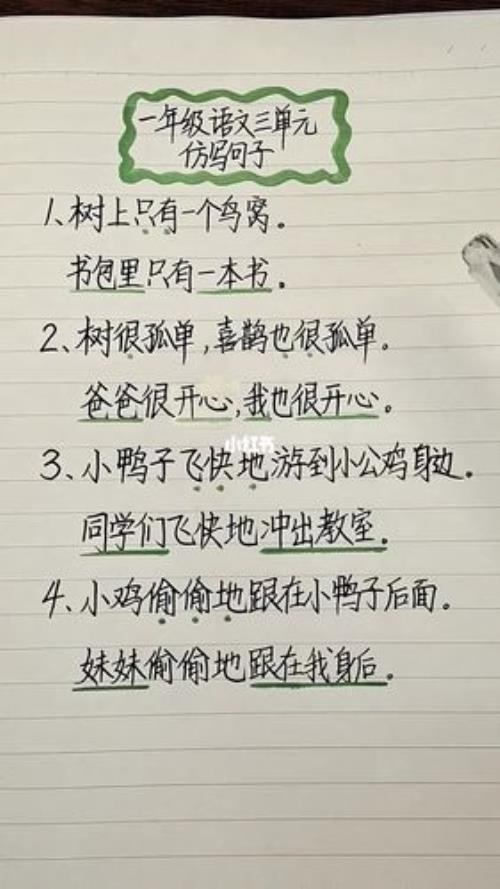 一年级语文三单元
仿写句子
1、树上只有一个鸟窝。
书包里只有一本书。
2、树很孤单,喜鹊也很孤单。
爸爸很开心,我也很开心。
小红书
3、小鸭子飞快地游到小公鸡身边。
同学们飞快地冲出教室。
4、小鸡偷偷地跟在小鸭子后面。
妹妹偷偷地跟在我身后。